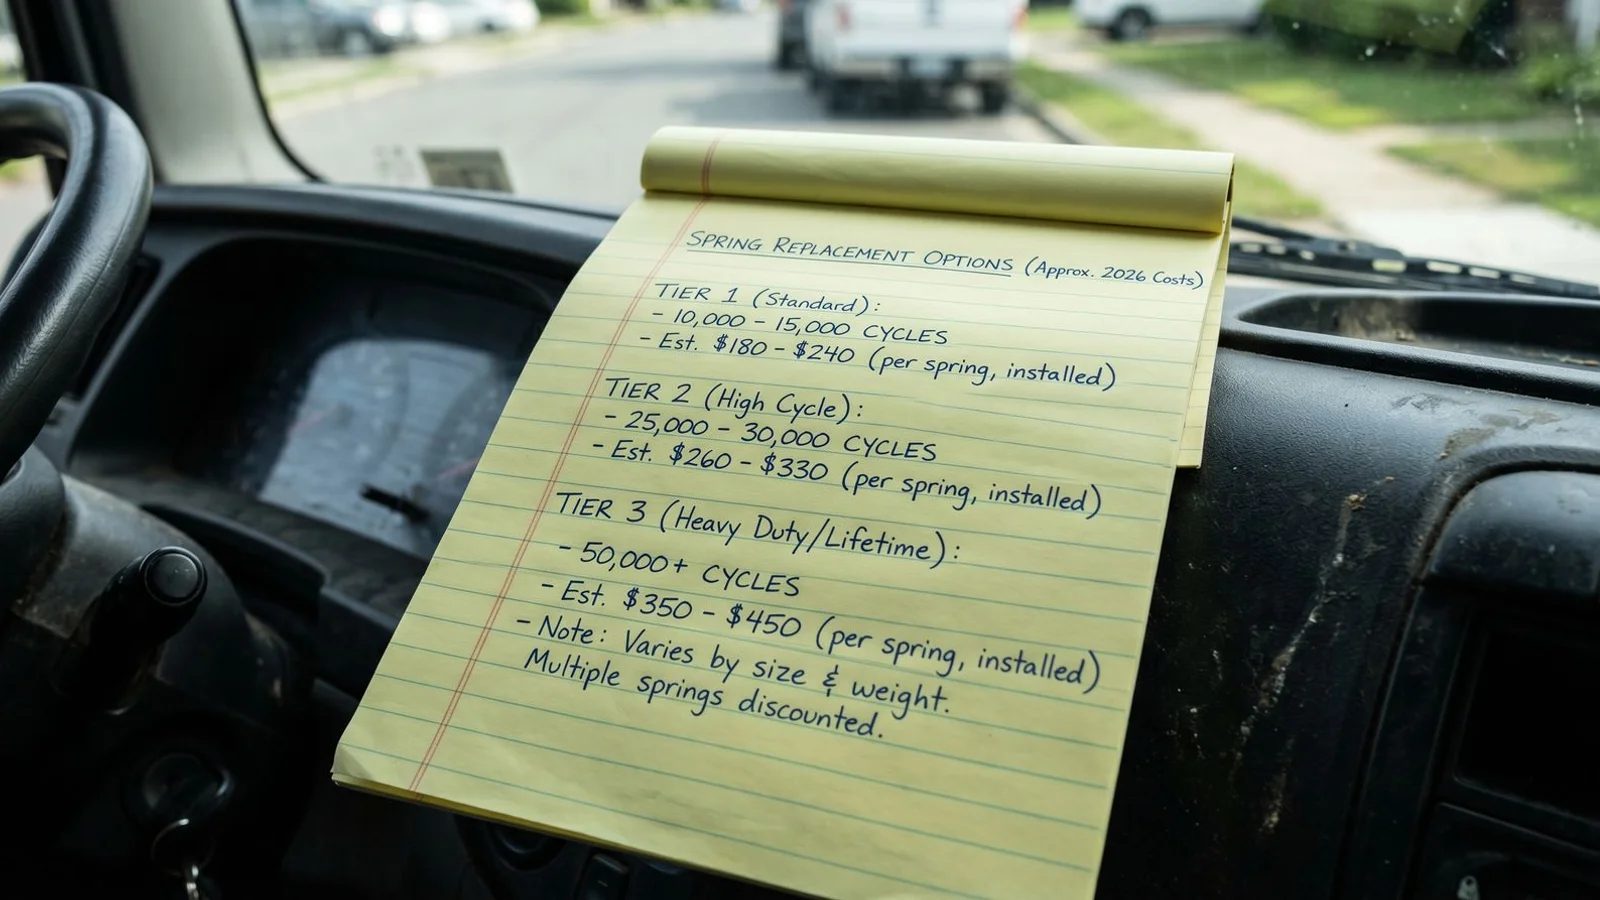 SPRING REPLACEMENT OPTIONS (Approx. 2026 Costs)
TIER 1 (Standard):
- 10,000 - 15,000 CYCLES
- Est. $180 - $240 (per spring, installed)
TIER 2 (High Cycle):
- 25,000 - 30,000 CYCLES
- Est. $260 - $330 (per spring, installed)
TIER 3 (Heavy Duty/Lifetime):
- 50,000+ CYCLES
- Est. $350 - $450 (per spring, installed)
- Note: Varies by size & weight.
Multiple springs discounted.